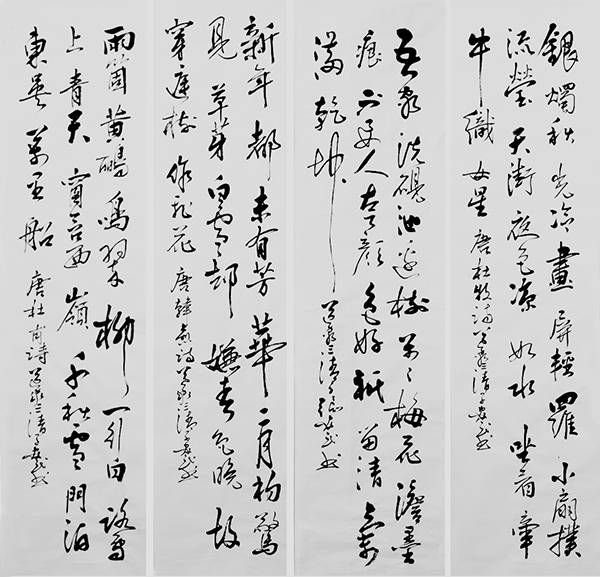 銀燭秋光冷畫屏輕羅小扇撲
流螢天街夜色凉如水坐看牽
牛織女星 唐杜牧詩
吾家洗硯池边樹个々梅花澹墨
痕不要人夸顏色好祇留清氣
滿乾坤
新年都未有芳華二月初驚
見草芽白雪却嫌春色晚故
穿庭樹作飛花 唐韓愈詩
兩箇黃鸝鳴翠柳一行白鷺
上青天窗含西嶺千秋雪門泊
東吳萬里船 唐杜甫詩